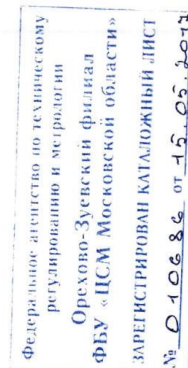 Федеральное агентство по техническому
регулированию и метрологии
Орехово-Зуевский филиал
ФБУ «ЦСМ Московской области»
ЗАРЕГИСТРИРОВАН КАТАЛОЖНЫЙ ЛИСТ
№ 010686 от 15.05.2017